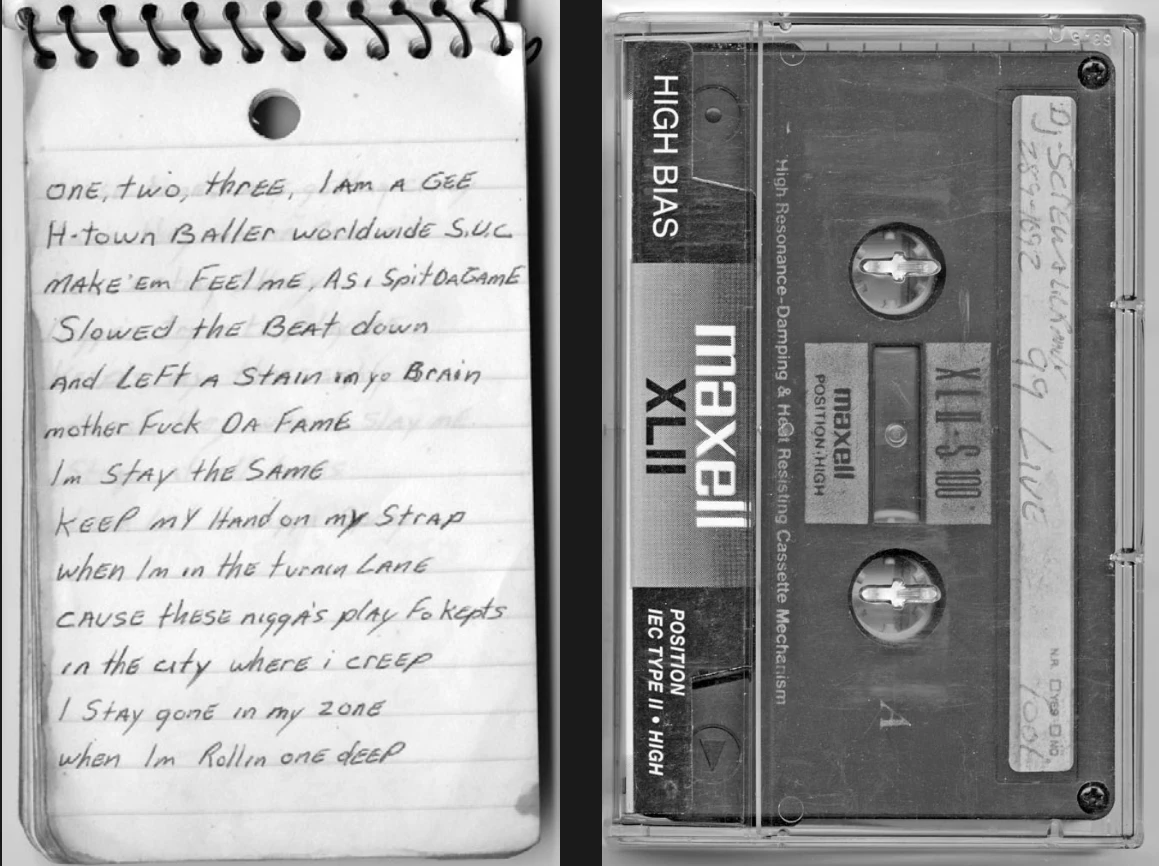 ONE, two, thrEE, I AM A GEE
H-town BAller worldwide S.U.C
MAKE 'Em FEEl mE, AS i Spit DA GAmE
Slowed the BEAt down
And LEFt A StAin in yo BrAin
mother Fuck DA FAmE
Im StAy the SAmE
KEEP mY HAnd on my StrAp
when Im in the turnin LAnE
CAUSE thESE niggA's plAy Fo kepts
in the city whERE i crEEP
I StAy gonE in my ZonE
when Im Rollin onE dEEP
HIGH BIAS
maxell
XLII
POSITION
IEC TYPE II • HIGH
High Resonance-Damping & Heat Resisting Cassette Mechanism
maxell
POSITION·HIGH
XLII-S 100
A
DJ-Screw & Lil Rank
99 LIVE
N.R. YES NO.